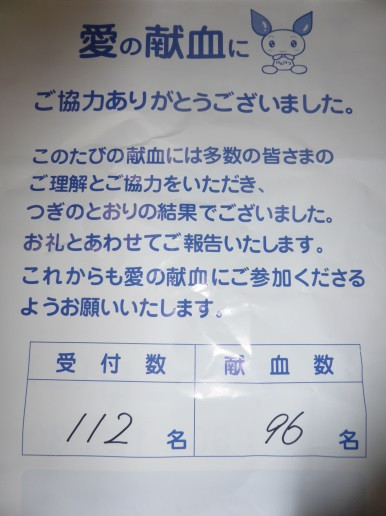 愛の献血に
ご協力ありがとうございました。
このたびの献血には多数の皆さまの
ご理解とご協力をいただき、
つぎのとおりの結果でございました。
お礼とあわせてご報告いたします。
これからも愛の献血にご参加くださる
ようお願いいたします。
受付数 献血数
112名 96名